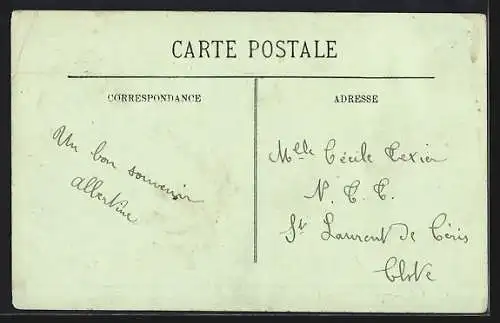 CARTE POSTALE
CORRESPONDANCE
ADRESSE
Un bon souvenir
Albertine
Mlle Cécile Texier
St Laurent de Céris